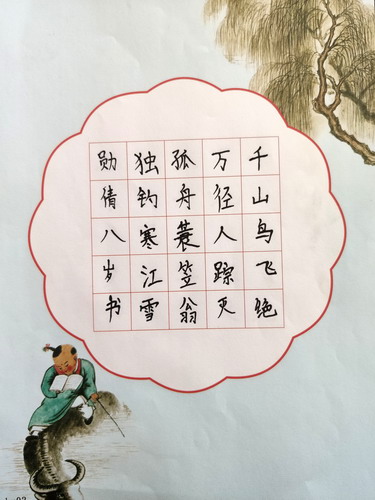 千山鸟飞绝
万径人踪灭
孤舟蓑笠翁
独钓寒江雪
勋倩八岁书